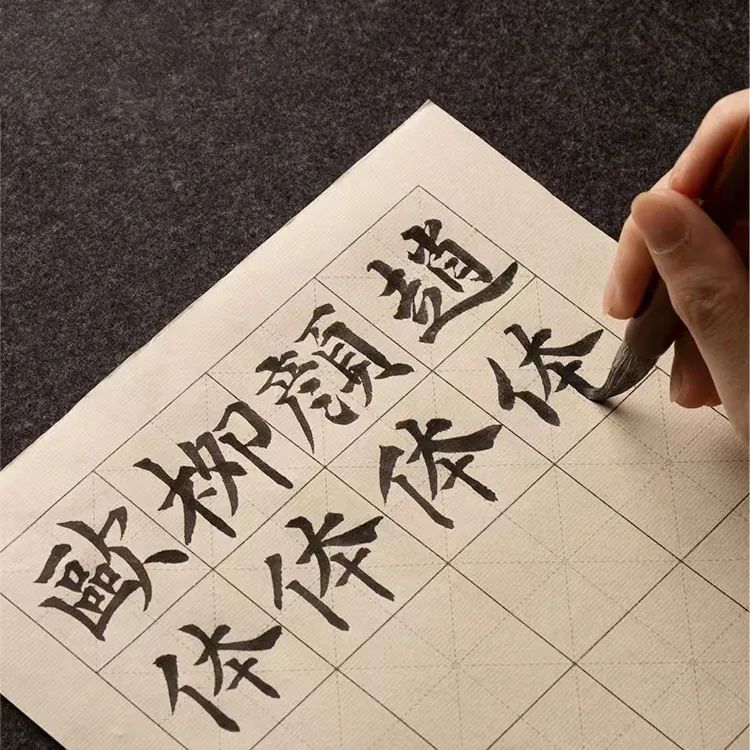 歐体
柳体
顏体
趙体